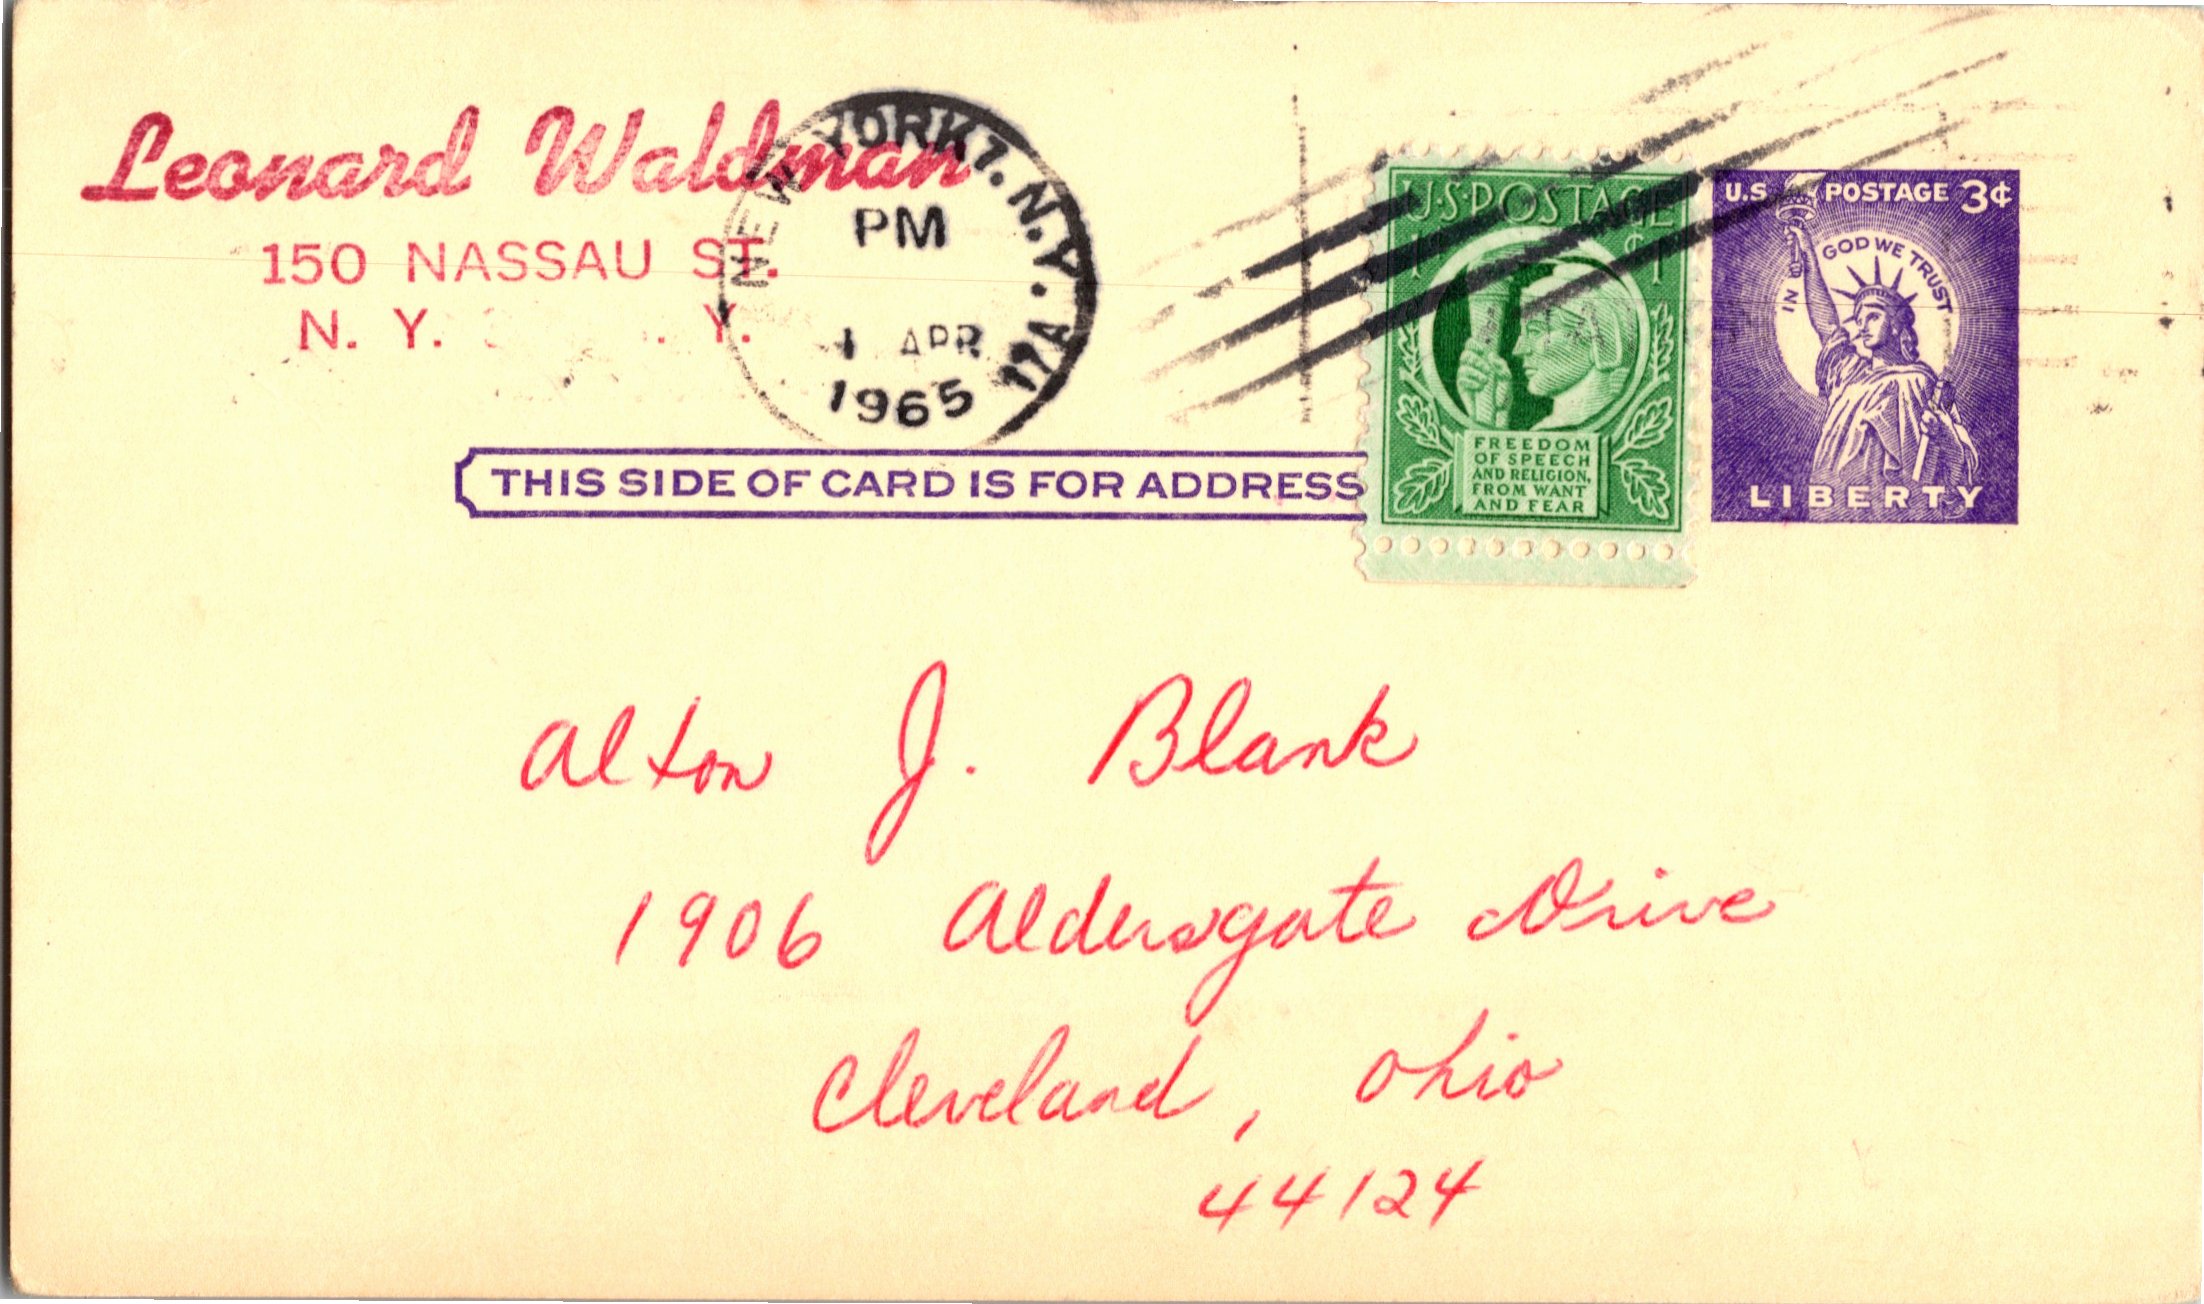 Leonard Waldman
150 NASSAU ST.
N. Y. Y.
NEW YORK 7. N.Y. 17A
PM
1 APR
1965
U.S. POSTAGE
1¢ 1¢
FREEDOM
OF SPEECH
AND RELIGION,
FROM WANT
AND FEAR
U.S. POSTAGE 3¢
IN GOD WE TRUST
LIBERTY
THIS SIDE OF CARD IS FOR ADDRESS
Alton J. Blank
1906 Aldersgate Drive
Cleveland, Ohio
44124